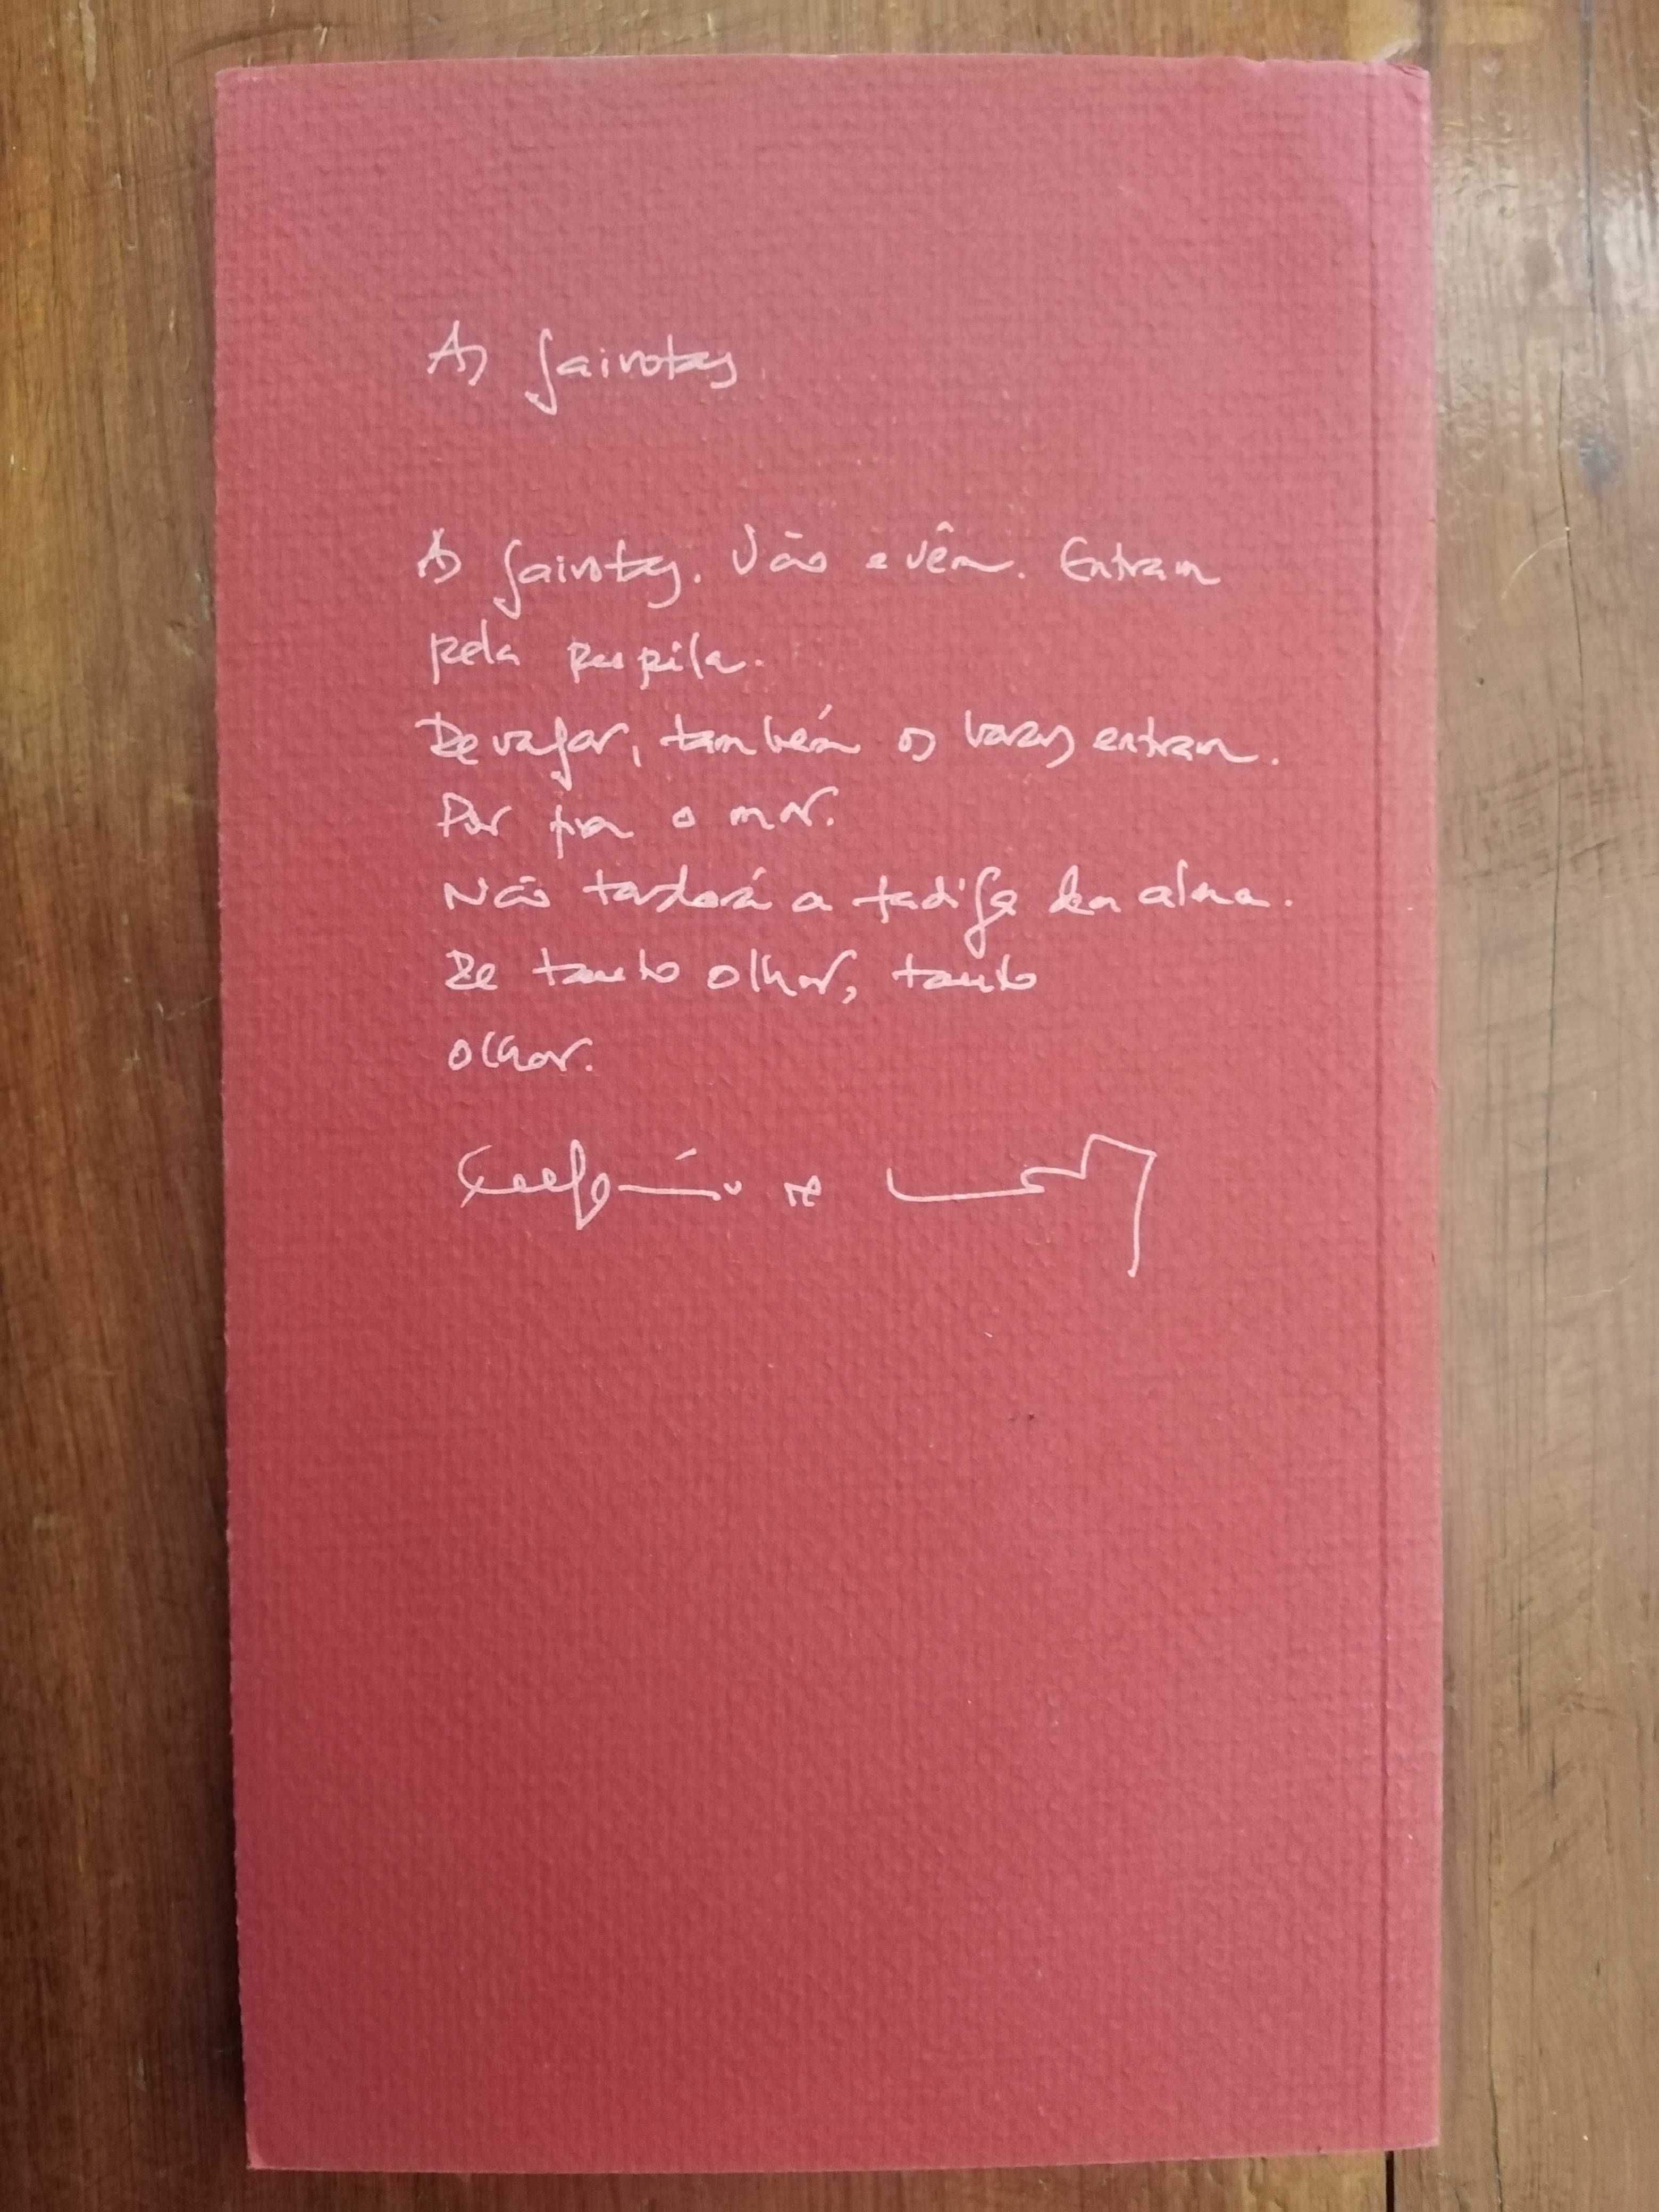 As gaivotas
As gaivotas. Vão e vêm. Entram
pela pupila.
Devagar, também os barcos entram.
Por fim o mar.
Não tardará a fadiga da alma.
De tanto olhar, tanto
olhar.
Eugénio de Andrade